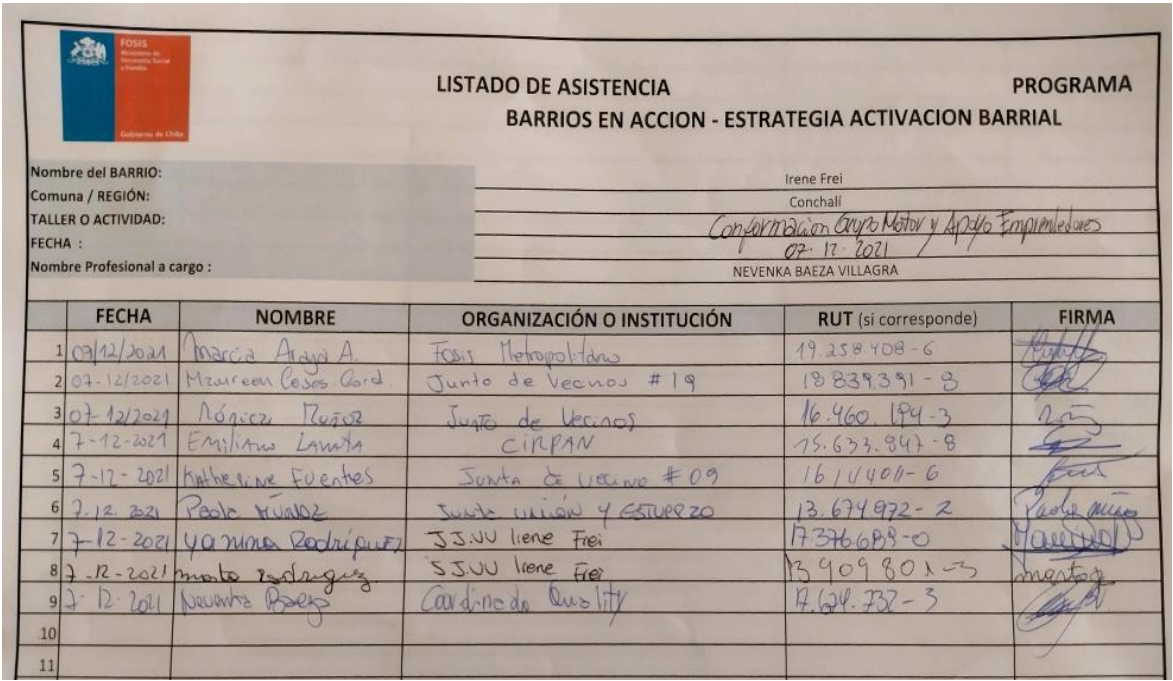 FOSIS
Ministerio de
Desarrollo Social
y Familia
Gobierno de Chile
LISTADO DE ASISTENCIA PROGRAMA
BARRIOS EN ACCION - ESTRATEGIA ACTIVACION BARRIAL
Nombre del BARRIO: Irene Frei
Comuna / REGIÓN: Conchalí
TALLER O ACTIVIDAD: Conformacion Grupo Motor y Apoyo Emprendedores
FECHA : 07-12-2021
Nombre Profesional a cargo : NEVENKA BAEZA VILLAGRA
FECHA NOMBRE ORGANIZACIÓN O INSTITUCIÓN RUT (si corresponde) FIRMA
1 07/12/2021 Marcia Araya A. Fosis Metropolitano 19.258.408-6
2 07-12/2021 Maureen Junto de vecinos #19 18.839.391-8
3 07-12/2021 Mónica Muñoz Junto de Vecinos 16.460.194-3
4 7-12-2021 Emiliano CIRPAN 15.633.847-8
5 7-12-2021 Katherine Fuentes Junta de vecino #09
6 7-12-2021 Paola Muñoz Junta unión y esfuerzo 13.674.972-2 Paola Muñoz
7 7-12-2021 Yanina Rodriguez JJ.VV Irene Frei 17.376.689-0
8 7-12-2021 marta rodriguez JJ.VV Irene Frei marta
9 7-12-2021 Nevenka Baeza Quality 17.624.732-3
10
11